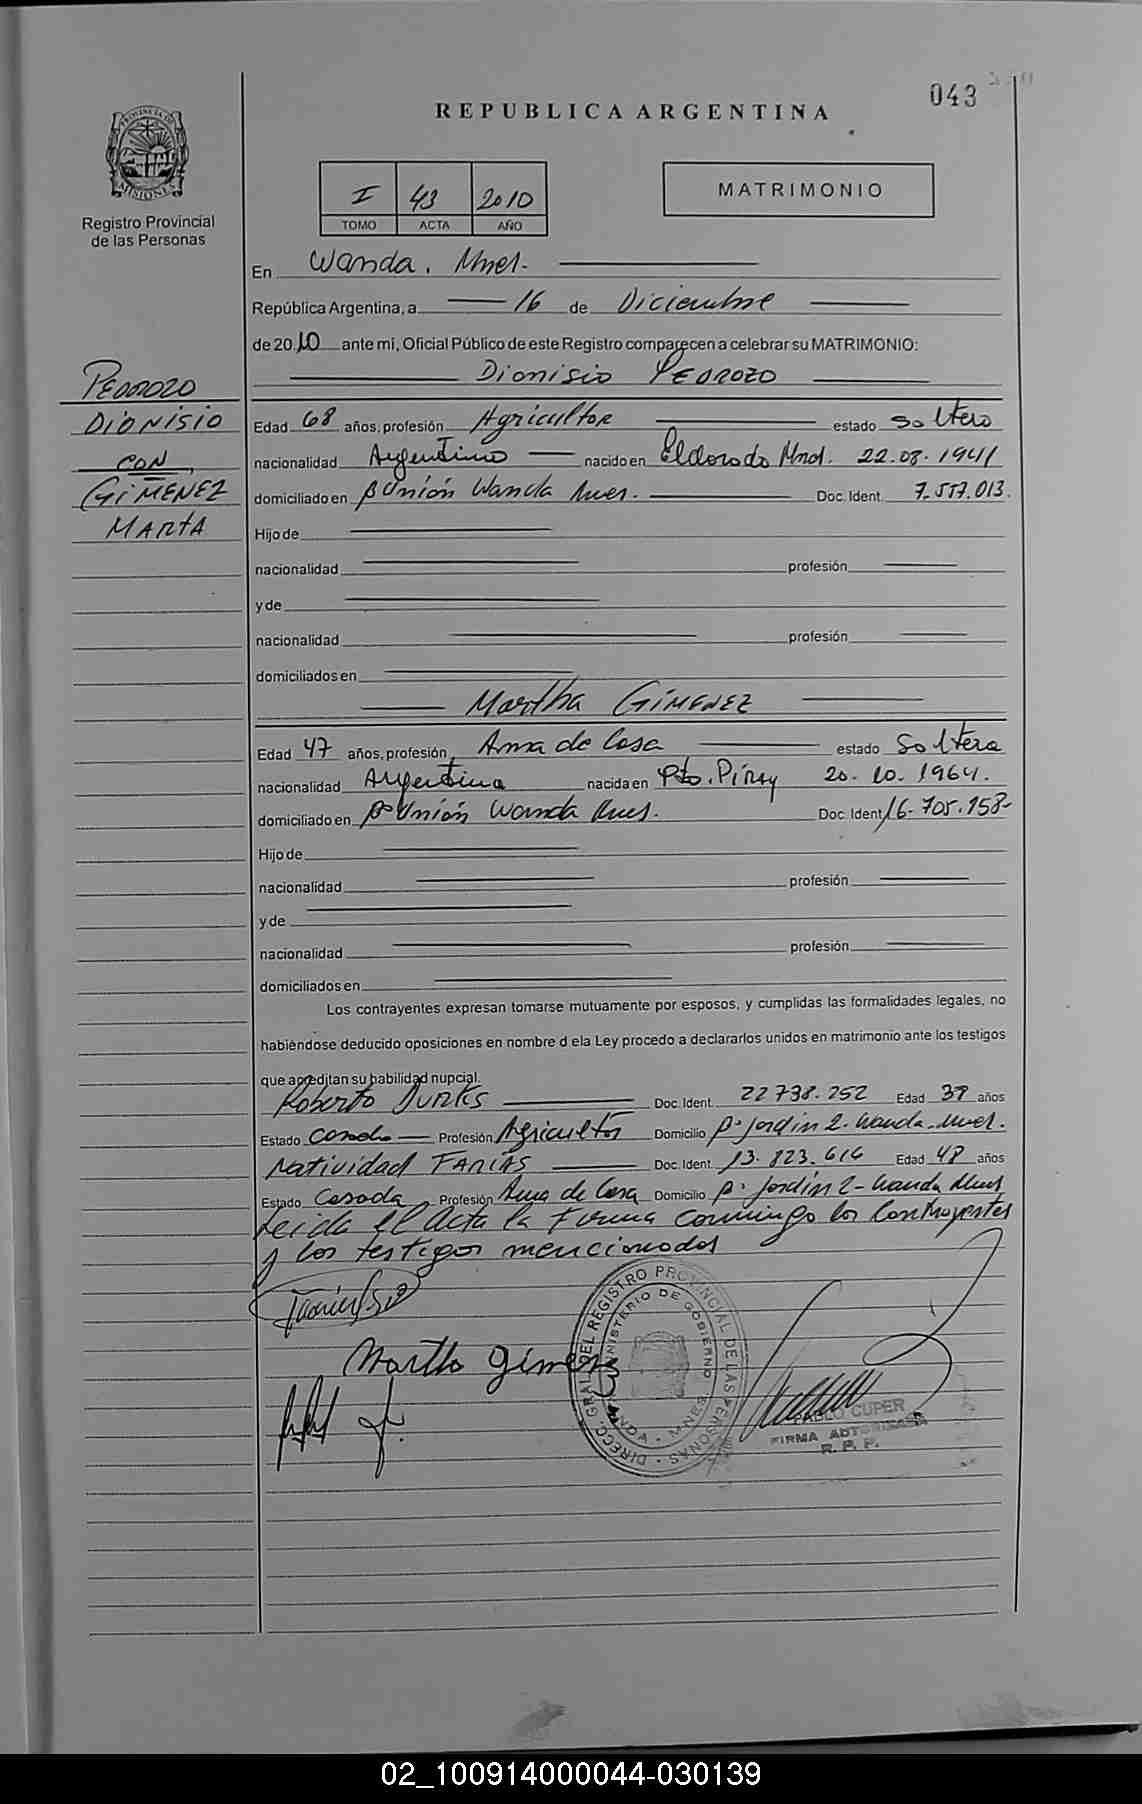 043
REPUBLICA ARGENTINA
PROVINCIA DE MISIONES
Registro Provincial
de las Personas
I 43 2010
TOMO ACTA AÑO
MATRIMONIO
En Wanda, Mnes.
República Argentina, a 16 de Diciembre
de 2010 ante mi, Oficial Público de este Registro comparecen a celebrar su MATRIMONIO:
Dionisio PEDROZO
PEDROZO
DIONISIO
CON
GIMENEZ
MARTA
Edad 68 años, profesión Agricultor estado Soltero
nacionalidad Argentino nacido en Eldorado Mnes. 22.08.1941
domiciliado en Bº Unión Wanda Mnes. Doc. Ident. 7.557.013.
Hijo de
nacionalidad profesión
y de
nacionalidad profesión
domiciliados en
Martha GIMENEZ
Edad 47 años, profesión Ama de Casa estado Soltera
nacionalidad Argentina nacida en Pto. Piray 20.10.1964.
domiciliado en Bº Unión Wanda Mnes. Doc. Ident 16.705.158-
Hijo de
nacionalidad profesión
y de
nacionalidad profesión
domiciliados en
Los contrayentes expresan tomarse mutuamente por esposos, y cumplidas las formalidades legales, no
habiéndose deducido oposiciones en nombre d ela Ley procedo a declararlos unidos en matrimonio ante los testigos
que acreditan su habilidad nupcial.
Roberto Doc. Ident. 22738.252 Edad 39 años
Estado Casado Profesión Agricultor Domicilio Bº Jardín 2- Wanda-Mnes.
Natividad FARIAS Doc. Ident. 13.823.616 Edad 48 años
Estado Casada Profesión Ama de Casa Domicilio Bº Jardín 2- Wanda Mnes
Leida el Acta la Firman conmingo los Contrayentes
y los testigos mencionados
Martha Gimenez
DIRECC. GRAL. DEL REGISTRO PROVINCIAL DE LAS PERSONAS
MINISTERIO DE GOBIERNO
WANDA - MNES
PABLO CUPER
FIRMA AUTORIZADA
R. P. P.
02_100914000044-030139